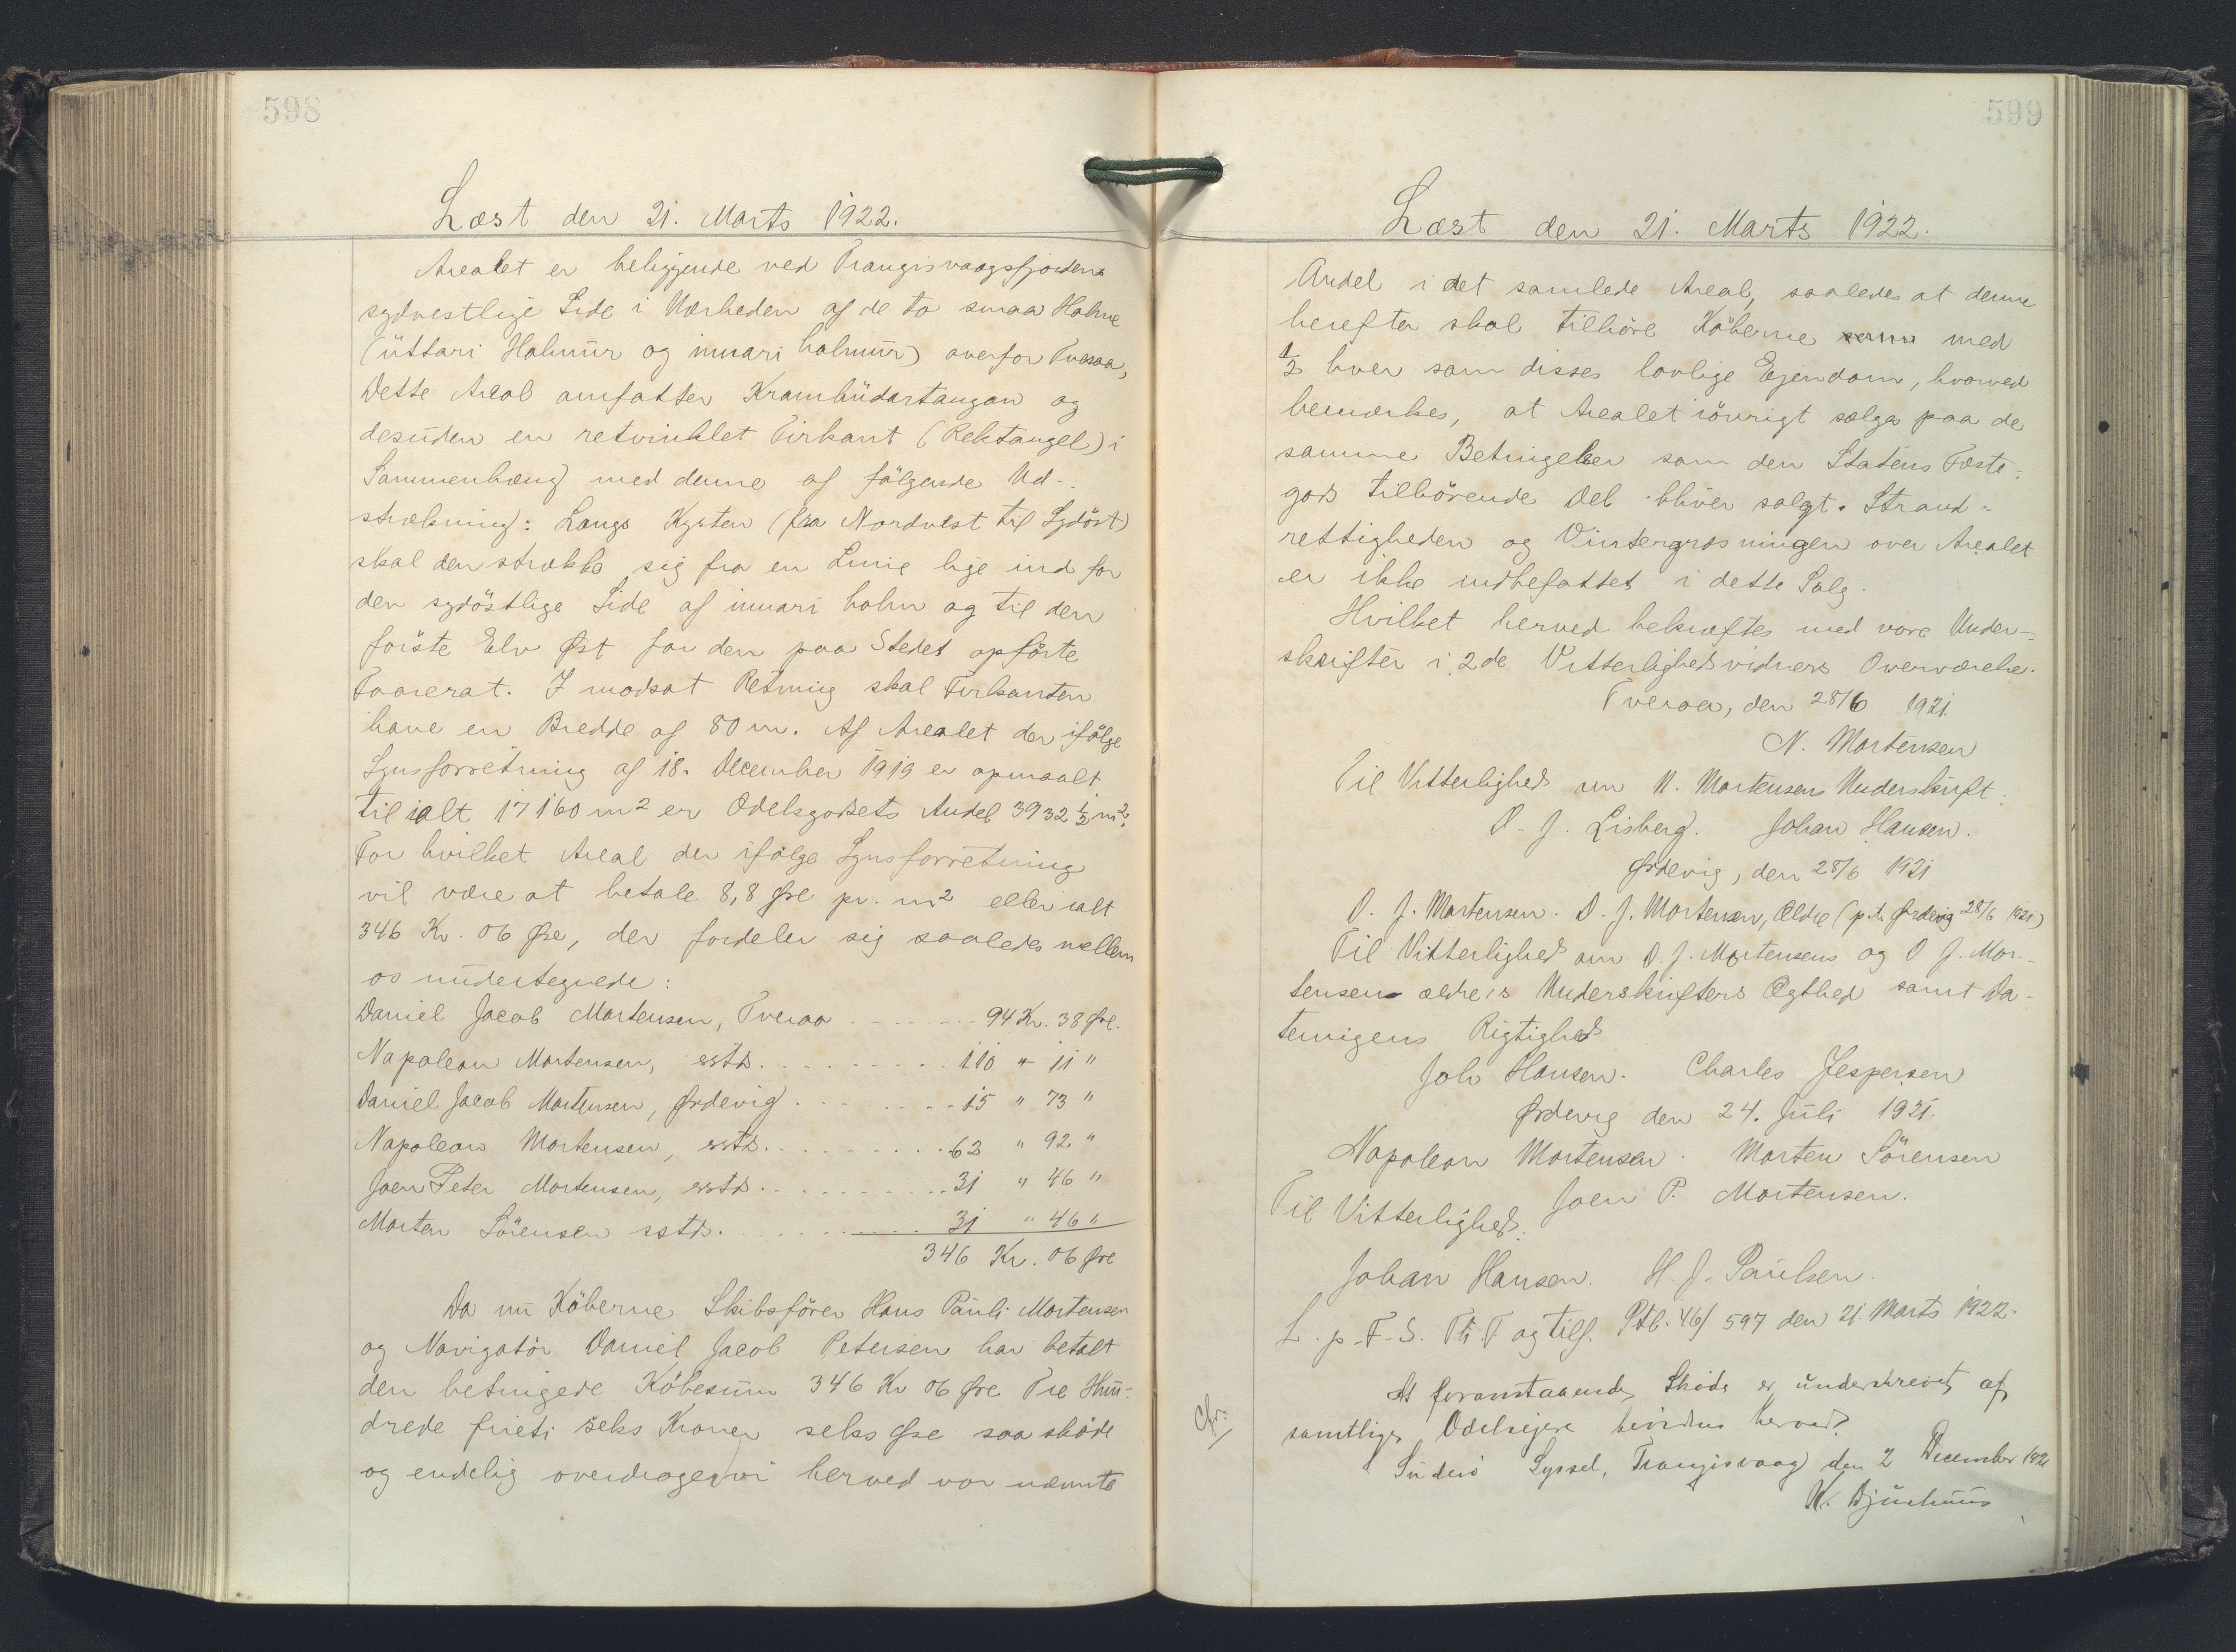 598
Læst den 21. Marts 1922.
Arealet er beliggende ved Trangisvaagsfjordens
sydvestlige Side i Nærheden af de to smaa Holme
(úttari Holmur og innari holmur) overfor Tveraa,
Dette Areal omfatter Krambúdartangan og
desuden en retvinklet Firkant (Rektangel) i
Sammenhæng med denne af følgende Ud-
strækning: Langs Kysten (fra Nordvest til Sydöst)
skal den strække sig fra en Linie lige ind for
den sydöstlige Side af innari holm og til den
förste Elv Øst for den paa Stedet opförte
I modsat Retning skal Firkanten
have en Bredde af 80 m. Af Arealet der ifölge
Synsforretning af 18. December 1919 er opmaalt
til ialt 17160 m2 er Odelsgodsets Andel 3932 1/2 m2.
For hvilket Areal der ifölge Synsforretning
vil være at betale 8,8 Øre pr. m2 eller ialt
346 Kr. 06 Øre, der fordeler sig saaledes mellem
os undertegnede:
Daniel Jacob Mortensen, Tveraa ........ 94 Kr. 38 Øre.
Napoleon Mortensen, sstd. ......... 110 " 11 "
Daniel Jacob Mortensen, Ørdevig ........ 15 " 73 "
Napoleon Mortensen, sstd. ......... 62 " 92 "
Joen Peter Mortensen, sstd. .......... 31 " 46 "
Morten Sörensen sstd. .......... 31 " 46 "
346 Kr. 06 Øre
Da nu Köberne Skibsförer Hans Pauli Mortensen
og Navigatör Daniel Jacob Petersen har betalt
den betingede Köbesum 346 Kr 06 Øre Tre Hun-
drede fireti seks Kroner seks Øre saa sköde
og endelig overdrager vi herved vor nævnte
599
Læst den 21. Marts 1922.
Andel i det samlede Areal, saaledes at denne
herefter skal tilhöre Köberne som med
1/2 hver som disses lovlige Ejendom, hvorved
bemærkes, at Arealet iövrigt sælges paa de
samme Betingelser som den Statens Fæste-
gods tilhörende Del bliver solgt. Strand-
rettigheden og Vintergræsningen over Arealet
er ikke indbefattet i dette Salg.
Hvilket herved bekræftes med vore Under-
skrifter i 2de Vitterlighedsvidners Overværelse.
Tveraa, den 28/6 1921.
N. Mortensen
Til Vitterlighed om N. Mortensens Underskrift:
P. J. Lisberg. Johan Hansen.
Ørdevig, den 28/6 1921
D. J. Mortensen. D. J. Mortensen, Ældre (p.t. Ørdevig 28/6 1921)
Til Vitterlighed om D. J. Mortensens og D J. Mor-
tensen ældre's Underskrifters Ægthed samt Da-
teringens Rigtighed
Joh Hansen. Charles Jespersen
Ørdevig den 24. Juli 1921.
Napoleon Mortensen. Morten Sörensen
Joen P. Mortensen.
Til Vitterlighed:
Johan Hansen. H. J. Paulsen.
L. p. F. S. Th. T og tilf. Ptb. 46/ 597 den 21. Marts 1922.
Cfr:
At foranstaaende Sköde er underskrevet af
samtlige Odelsejere bevidnes herved.
Suderö Syssel, Trangisvaag den 2 December 1921